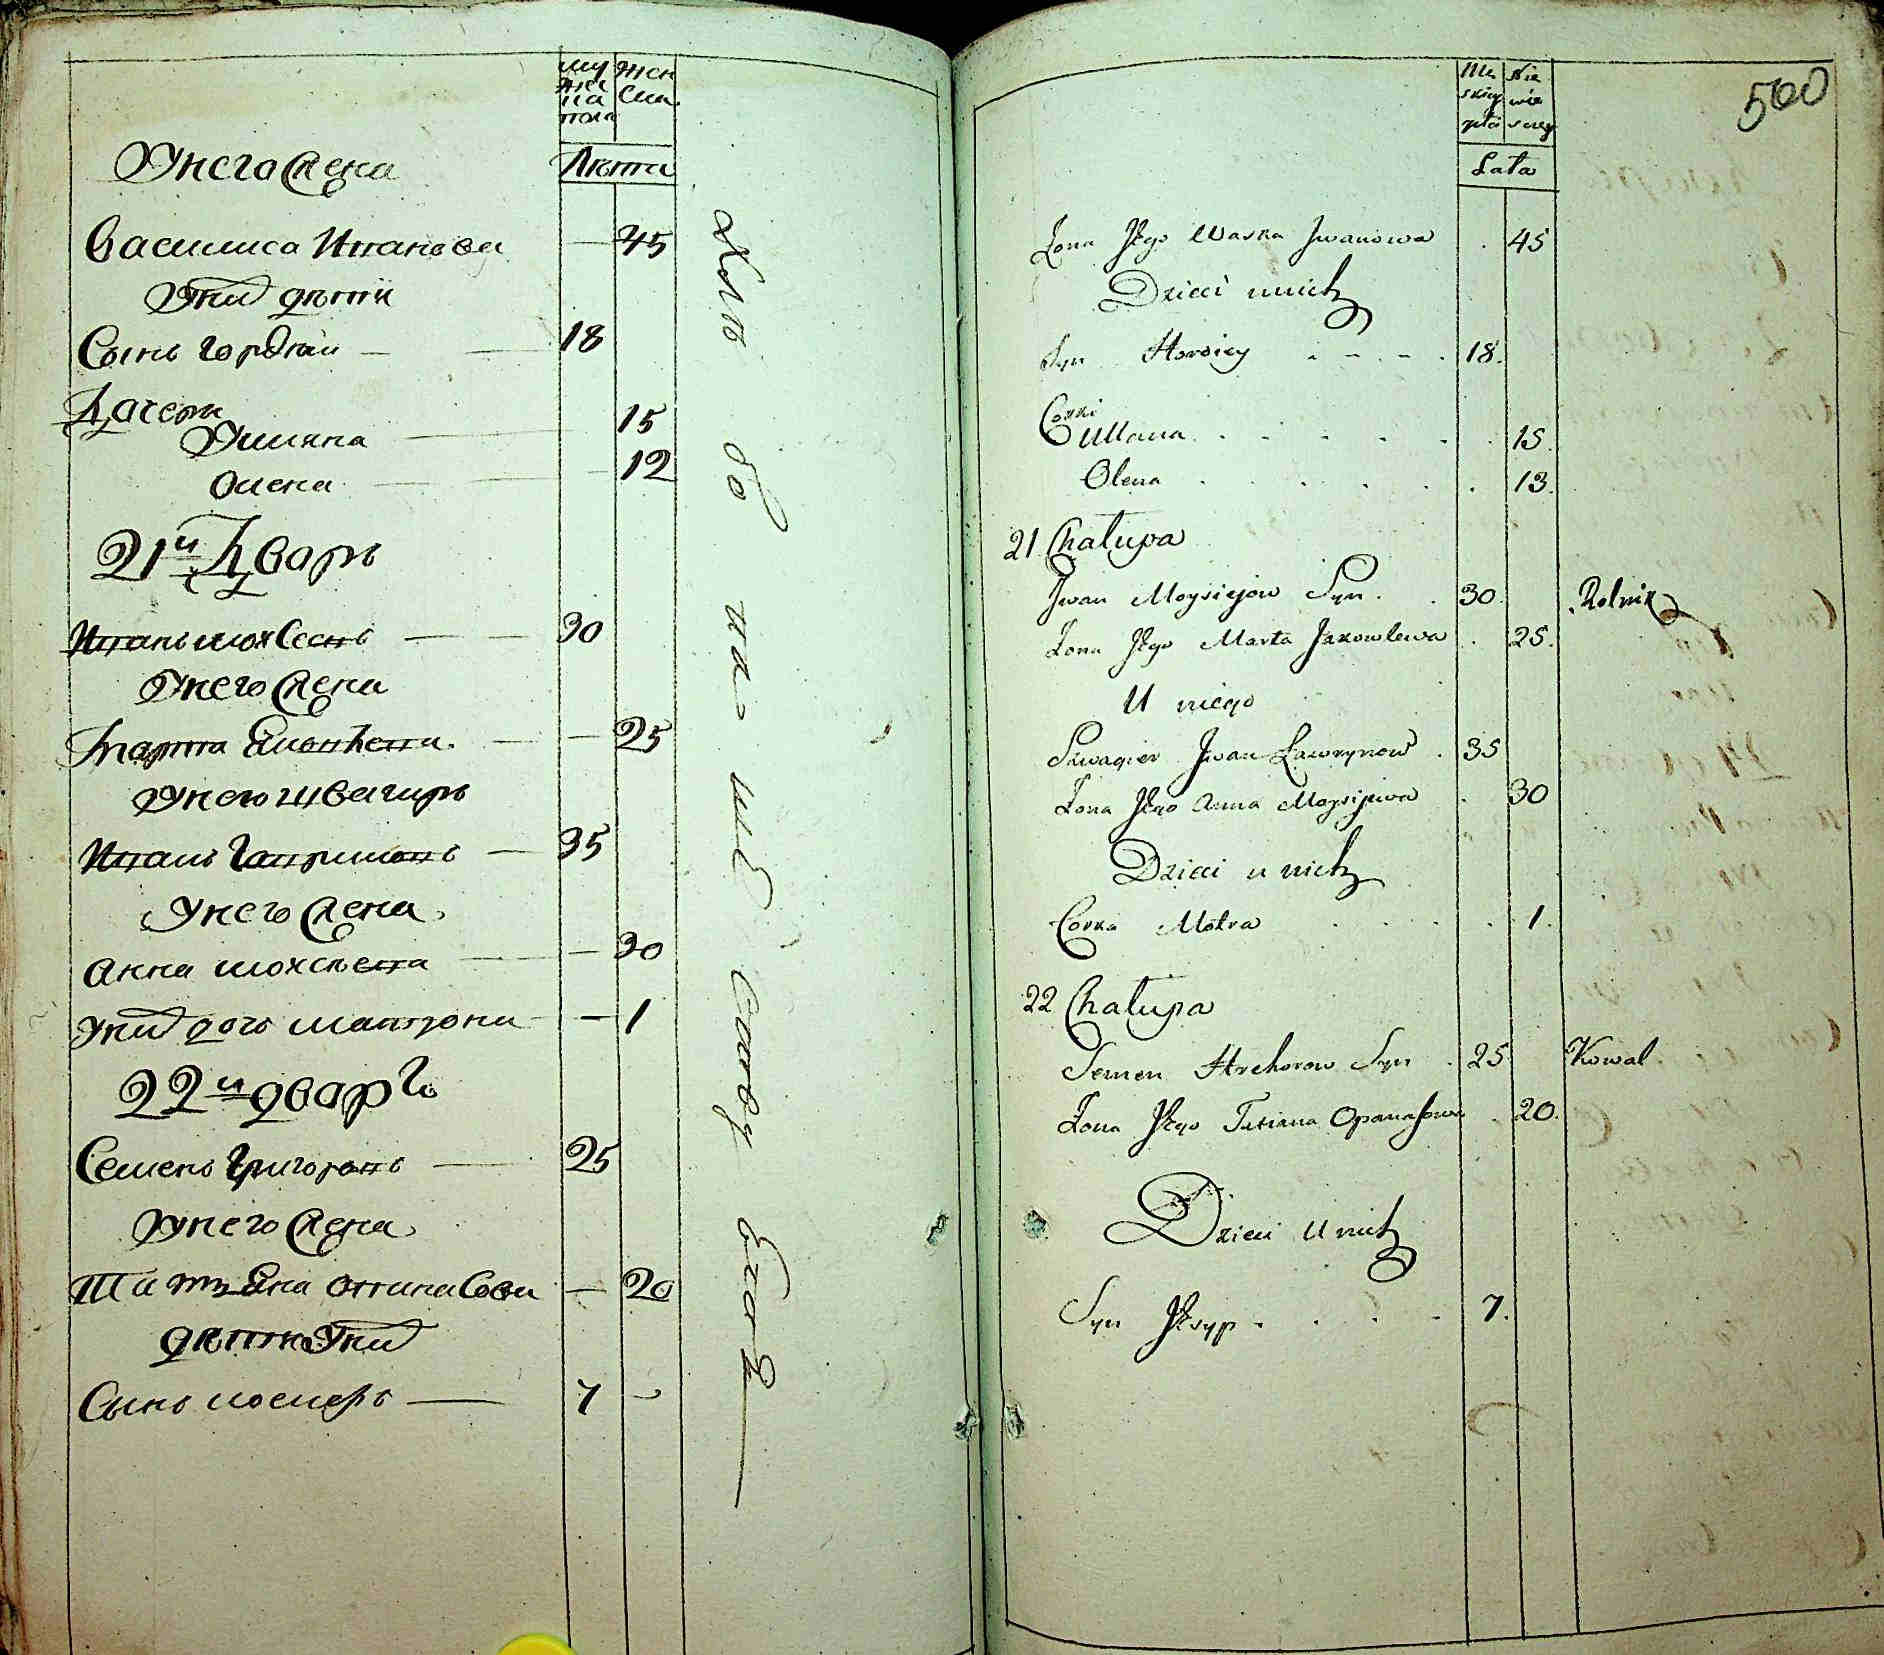 му
жес
ка
пола
жен
ска
Лѣта
У него жена
Василиса Иванова 45
У них дѣти
Сынъ Гордѣй 18
Дочери
Уляна 15
Олена 12
21й Дворъ
Иванъ Мойсѣевъ 30
У него жена
Марта 25
У него швагиръ
Иванъ 35
У него жена
Анна Мойсѣева 30
У них дочь Матрона 1
22й дворъ
Семенъ Григоровъ 25
У него жена
Татьяна Опанасова 20
дѣти у них
Сынъ Іосифъ 7
Mę
skiey
płci
Nie
wie
sciey
Lata
500
Żona Jego Waska Iwanowa 45
Dzieci u nich
Syn Hordiey 18.
Corki
Ullana 15.
Olena 13.
21 Chałupa
Iwan Moysiejow Syn 30 Rolnik
Żona Jego Marta Jakowlewa 25.
U niego
Szwagier Iwan Ławrynow 35
Żona Jego Anna Moysijewa 30
Dzieci u nich
Corka Motra 1.
22 Chałupa
Semen Hrehorow Syn 25 Kowal
Żona Jego Tatiana Opanasowa 20.
Dzieci u nich
Syn Josyp 7.